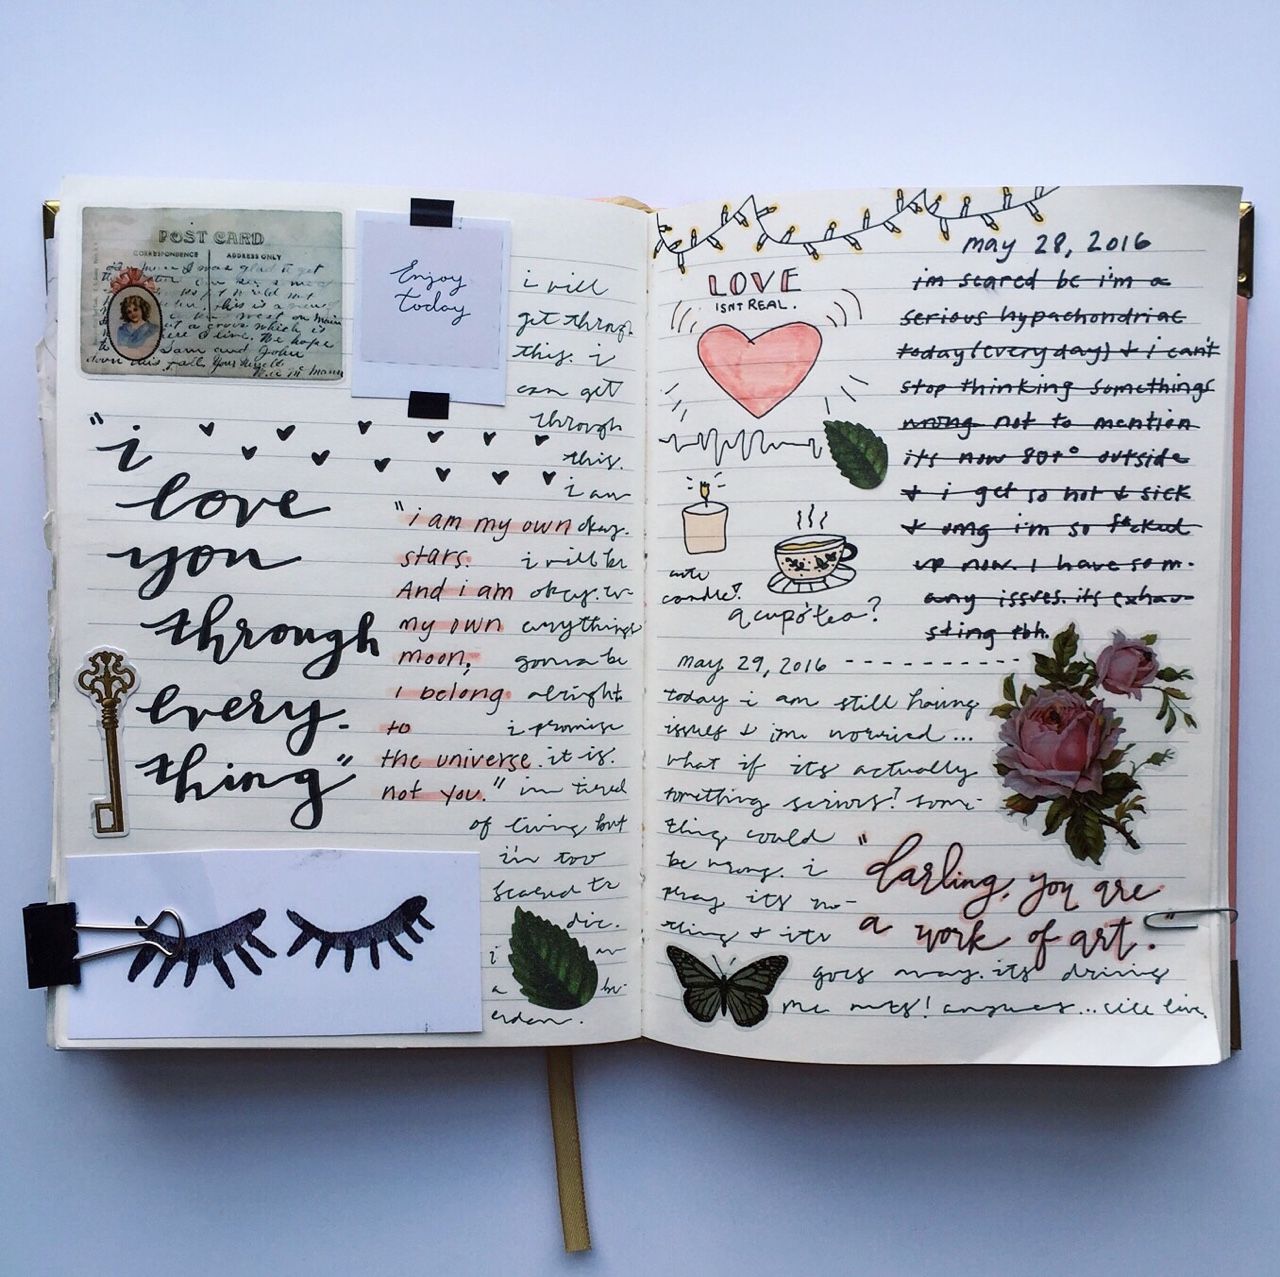 POST CARD
CORRESPONDENCE
ADDRESS ONLY
Enjoy
today
"i
love
you
through
every-
thing"
"i am my own
stars.
And i am
my own
moon;
i belong
to
the universe.
not you."
i will
get through
this. i
can get
through
this.
i am
okay.
i will be
okay.
everything's
gonna be
alright
i promise
it is.
im tired
of living but
i'm too
scared to
die.
i
a bur-
erden.
LOVE
ISNT REAL.
cute
candle?
a cup o' tea?
may 28, 2016
im scared bc i'm a
serious hypachondriac
today (everyday) & i can't
stop thinking somethings
wrong not to mention
its now 80+° outside
& i get so hot & sick
& omg i'm so f*cked
up now. i have so m-
any issues. its exhau-
sting tbh.
may 29, 2016
today i am still having
issues & im worried...
what if its actually
something serious? some-
thing could
be wrong. i
pray its no-
thing & its
goes away. its driving
me nuts!
"darling, you are
a work of art."